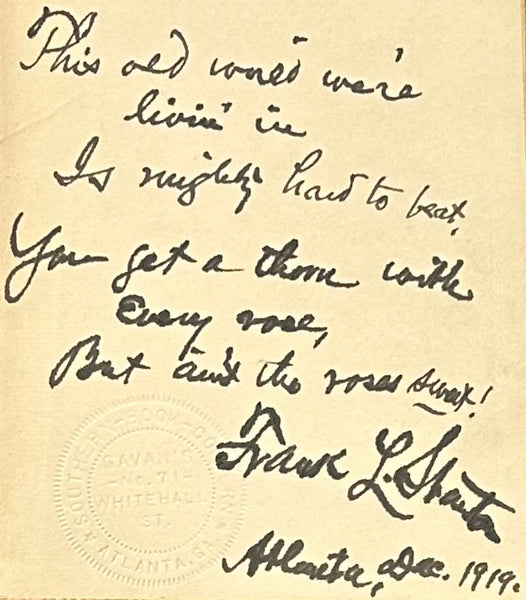 This old world we're
livin' in
Is mighty hard to beat,
You get a thorn with
every rose,
But ain't the roses sweet!
Frank L. Stanton
Atlanta, Dec. 1919.
SOUTHERN BOOK
GAVAN'S
No 71
WHITEHALL
ST.
ATLANTA, GA.